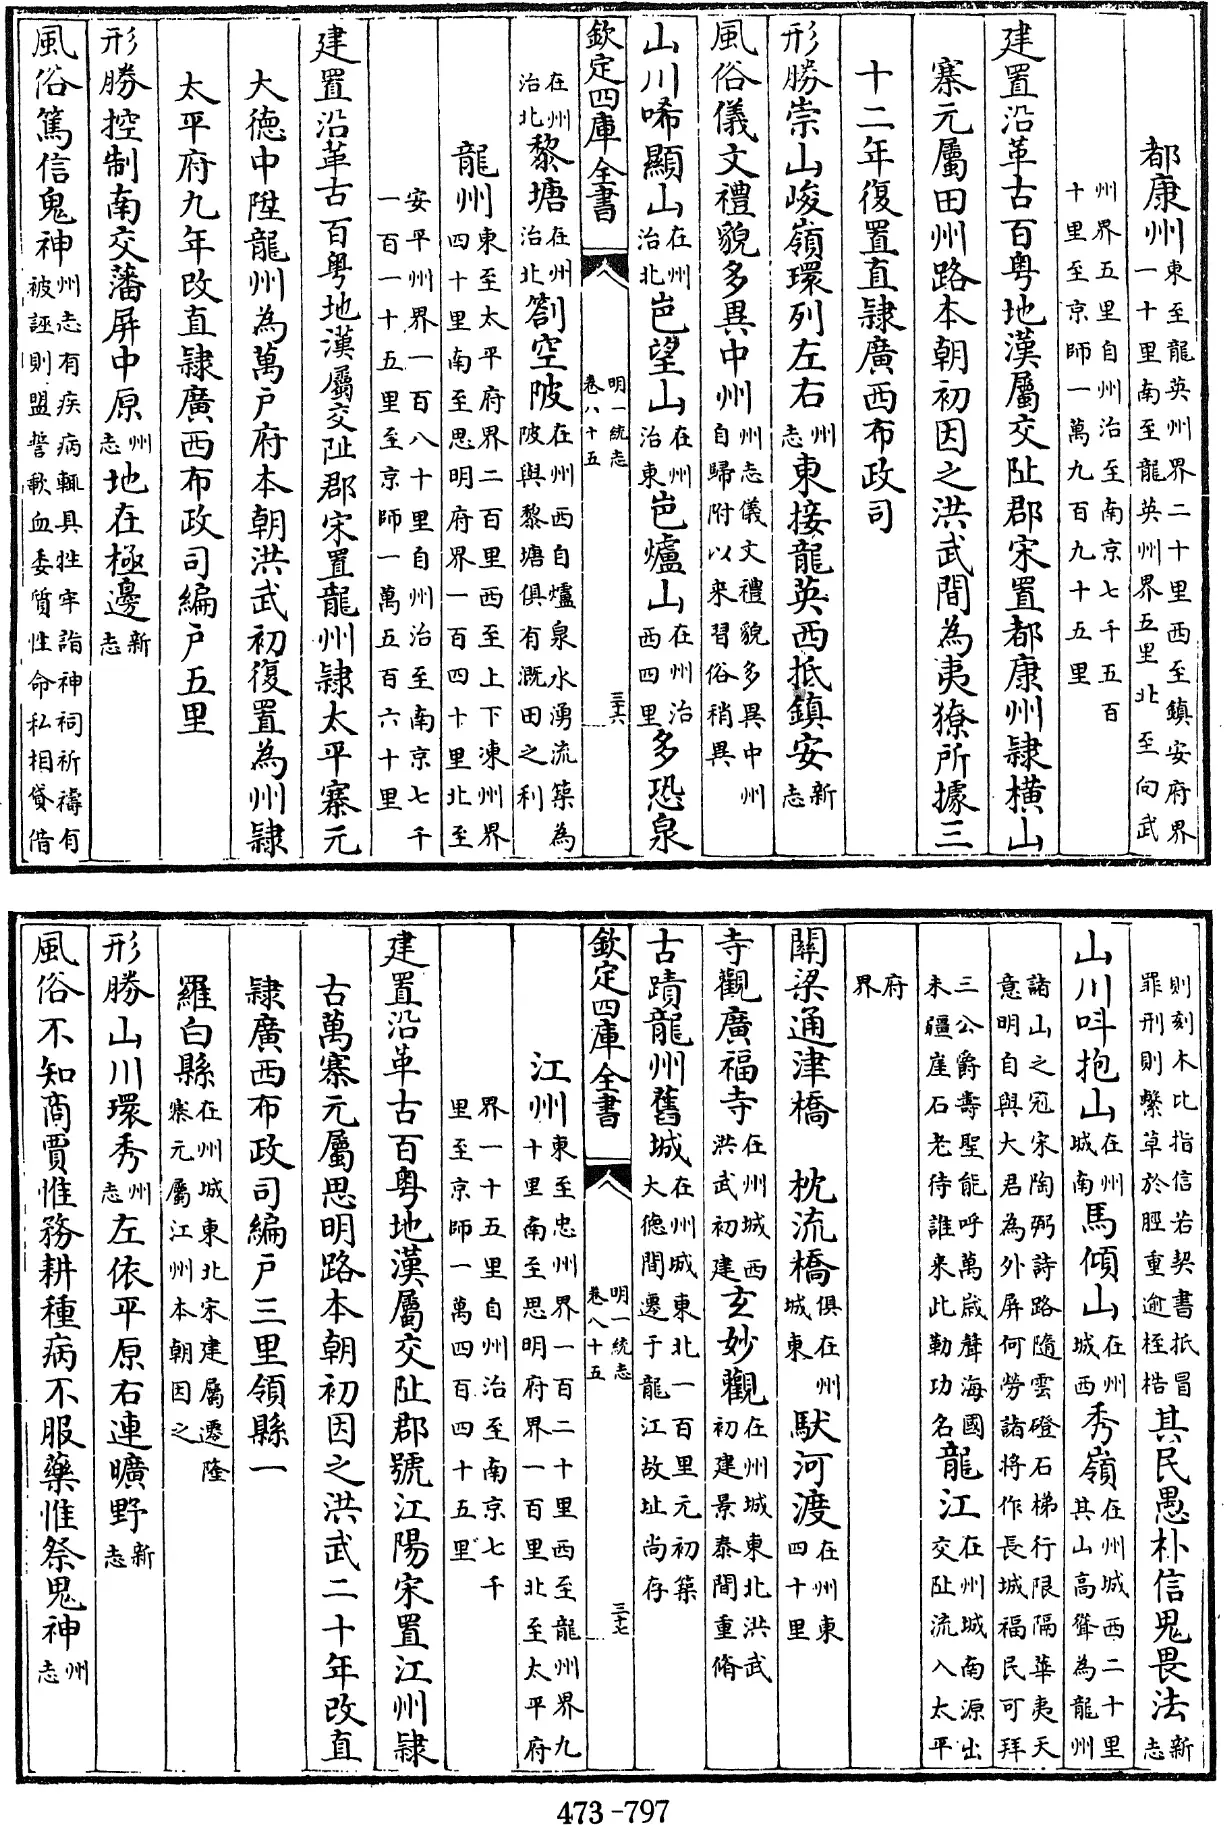 都康州東至龍英州界二十里西至鎮安府界一十里南至龍英州界五里北至向武
州界五里自州治至南京七千五百十里至京師一萬九百九十五里
建置沿革古百粤地漢屬交阯郡宋置都康州隸横山
寨元屬田州路本朝初因之洪武間為夷獠所據三
十二年復置直隸廣西布政司
形勝崇山峻嶺環列左右州志東接龍英西抵鎮安新志
風俗儀文禮貌多異中州州志儀文禮貌多異中州自歸附以來習俗稍異
山川唏顯山在州治北岜望山在州治東岜爐山在州治西四里多恐泉
欽定四庫全書 明一統志卷八十五 三十六
在州治北黎塘在州治北劄空陂在州西自爐泉水湧流築為陂與黎塘俱有溉田之利
龍州東至太平府界二百里西至上下凍州界四十里南至思明府界一百四十里北至
安平州界一百八十里自州治至南京七千一百一十五里至京師一萬五百六十里
建置沿革古百粤地漢屬交阯郡宋置龍州隸太平寨元
大德中陞龍州為萬户府本朝洪武初復置為州隸
太平府九年改直隸廣西布政司編户五里
形勝控制南交藩屏中原州志地在極邊新志
風俗篤信鬼神州志有疾病輒具牲牢詣神祠祈禱有被誣則盟誓歃血委質性命私相貸借
則刻木比指信若契書抵冒罪刑則繫草於脛重逾桎梏其民愚朴信鬼畏法新志
山川呌抱山在州城南馬傾山在州城西秀嶺在州城西二十里其山高聳為龍州
諸山之冠宋陶弼詩路隨雲磴石梯行限隔華夷天意明自與大君為外屏何勞諸將作長城福民可拜
三公爵壽聖能呼萬歲聲海國未疆崖石老待誰來此勒功名龍江在州城南源出交阯流入太平
府界
關梁通津橋 枕流橋俱在州城東馱河渡在州東四十里
寺觀廣福寺在州城西洪武初建玄妙觀在州城東北洪武初建景泰間重脩
古蹟龍州舊城在州城東北一百里元初築大德間遷于龍江故址尚存
欽定四庫全書 明一統志卷八十五 三十七
江州東至忠州界一百二十里西至龍州界九十里南至思明府界一百里北至太平府
界一十五里自州治至南京七千里至京師一萬四百四十五里
建置沿革古百粤地漢屬交阯郡號江陽宋置江州隸
古萬寨元屬思明路本朝初因之洪武二十年改直
隸廣西布政司編户三里領縣一
羅白縣在州城東北宋建屬遷隆寨元屬江州本朝因之
形勝山川環秀州志左依平原右連曠野新志
風俗不知商賈惟務耕種病不服藥惟祭鬼神州志
473-797